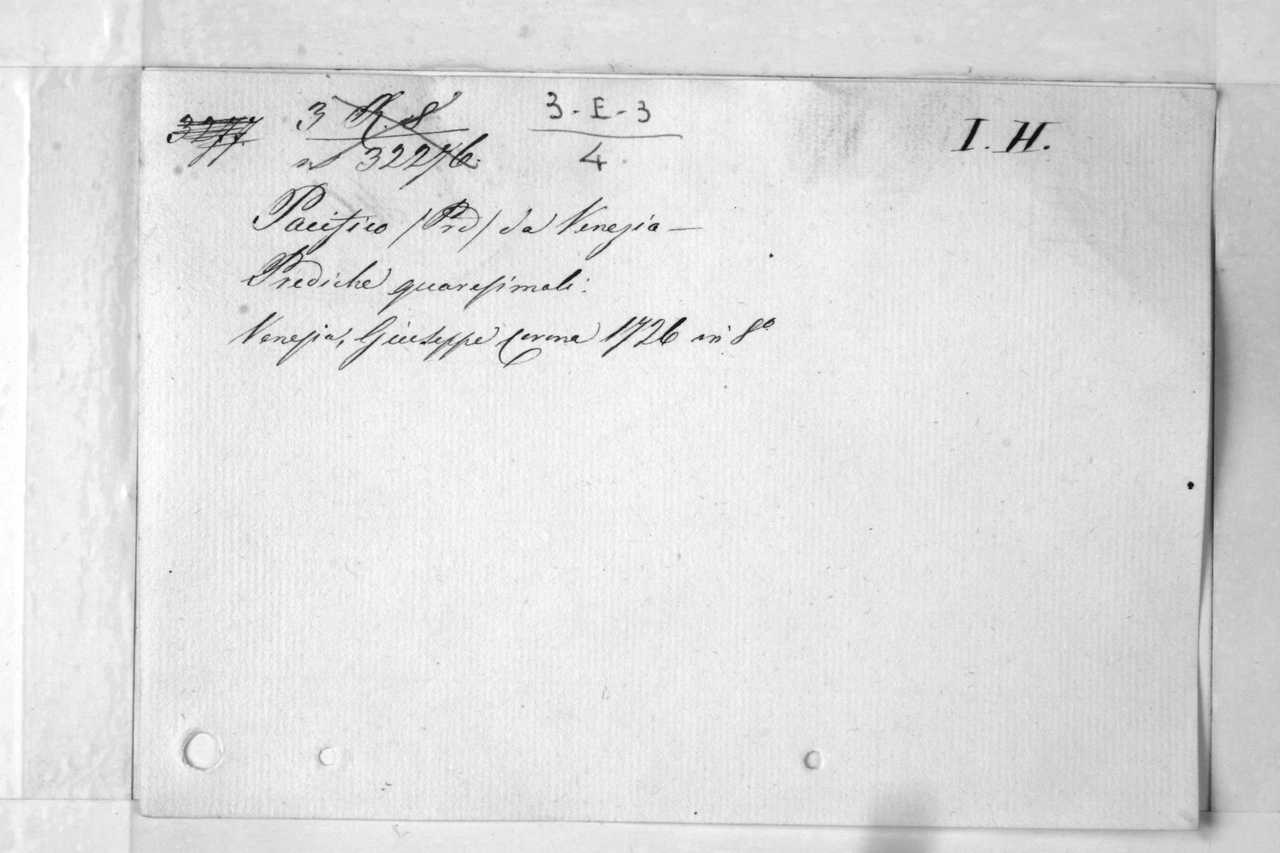 3277 3 R. 8 3-E-3 I. H.
32276 4
Pacifico /Pre/ da Venezia —
Prediche quaresimali:
Venezia, Giuseppe Corona 1726 in 8º